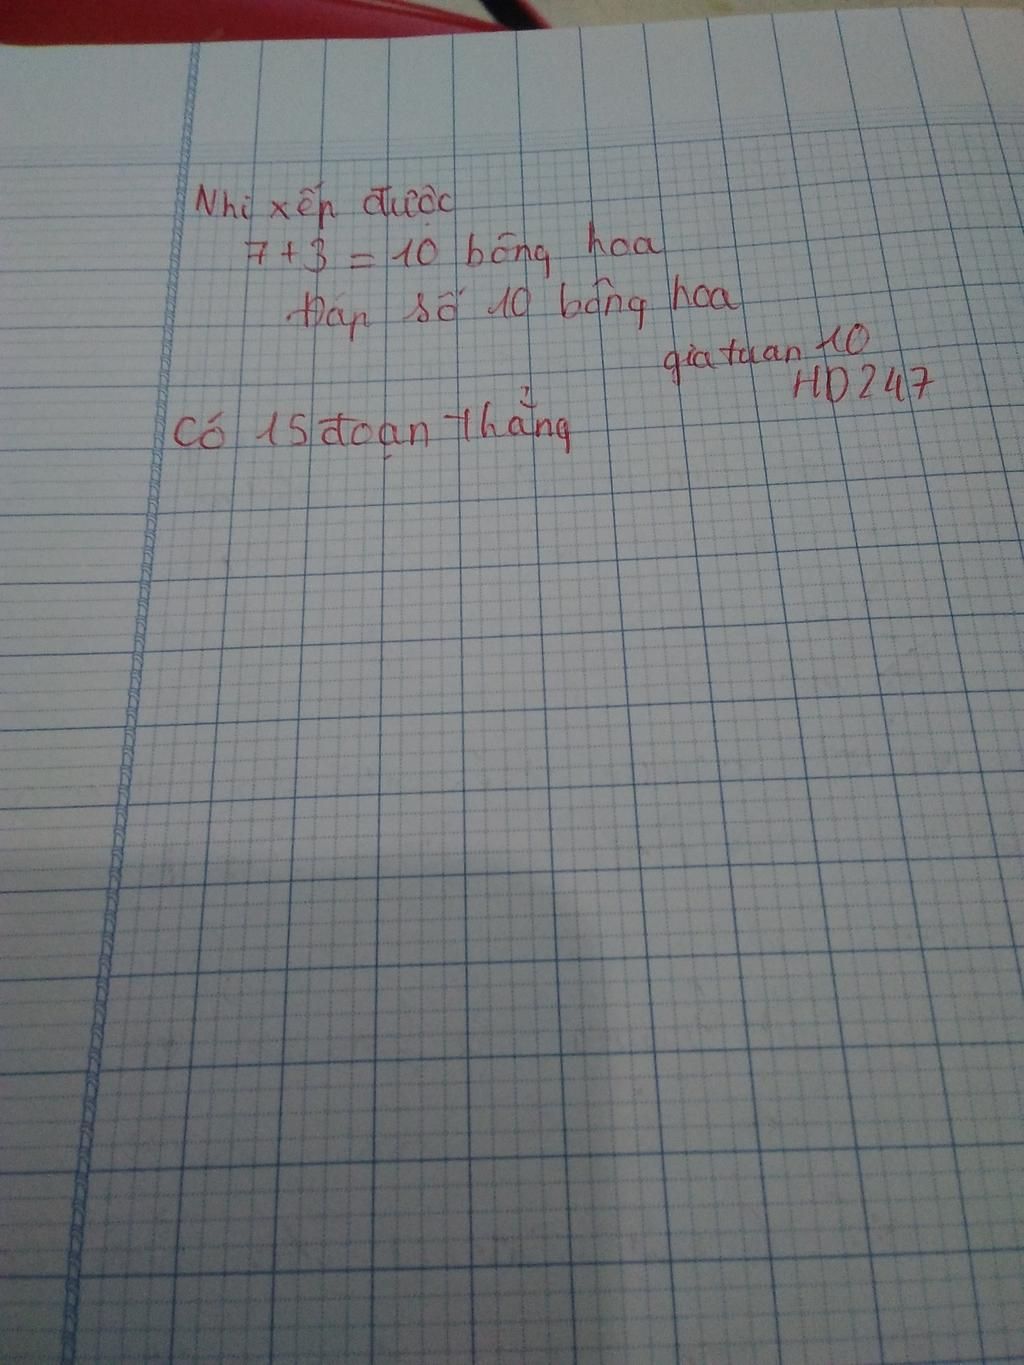 Nhi xếp được
7 + 3 = 10 bông hoa
Đáp số 10 bông hoa
gia tuan 10
HD247
Có 15 đoạn thẳng